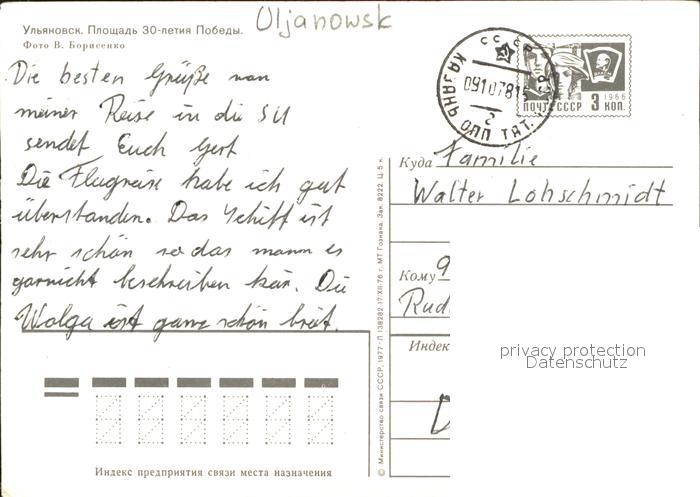 Uljanowsk
Ульяновск. Площадь 30-летия Победы.
Фото В. Борисенко
Die besten Grüße von
meiner Reise in die SU
sendet Euch Gert
Die Flugreise habe ich gut
überstanden. Das Schiff ist
sehr schön so das mann es
garnicht beschreiben kan. Die
Wolga ist ganz schön breit.
СССР
КАЗАНЬ ОПП ТАТ.
09107815
2
ПОЧТА СССР 3 КОП.
1966
Куда Familie
Walter Lohschmidt
Кому 9
Rud
Индек
privacy protection
Datenschutz
D
© Министерство связи СССР, 1977 · Л 138282 17/XII-76 г. МТ Гознака. Зак. 8222. Ц. 5 к.
Индекс предприятия связи места назначения